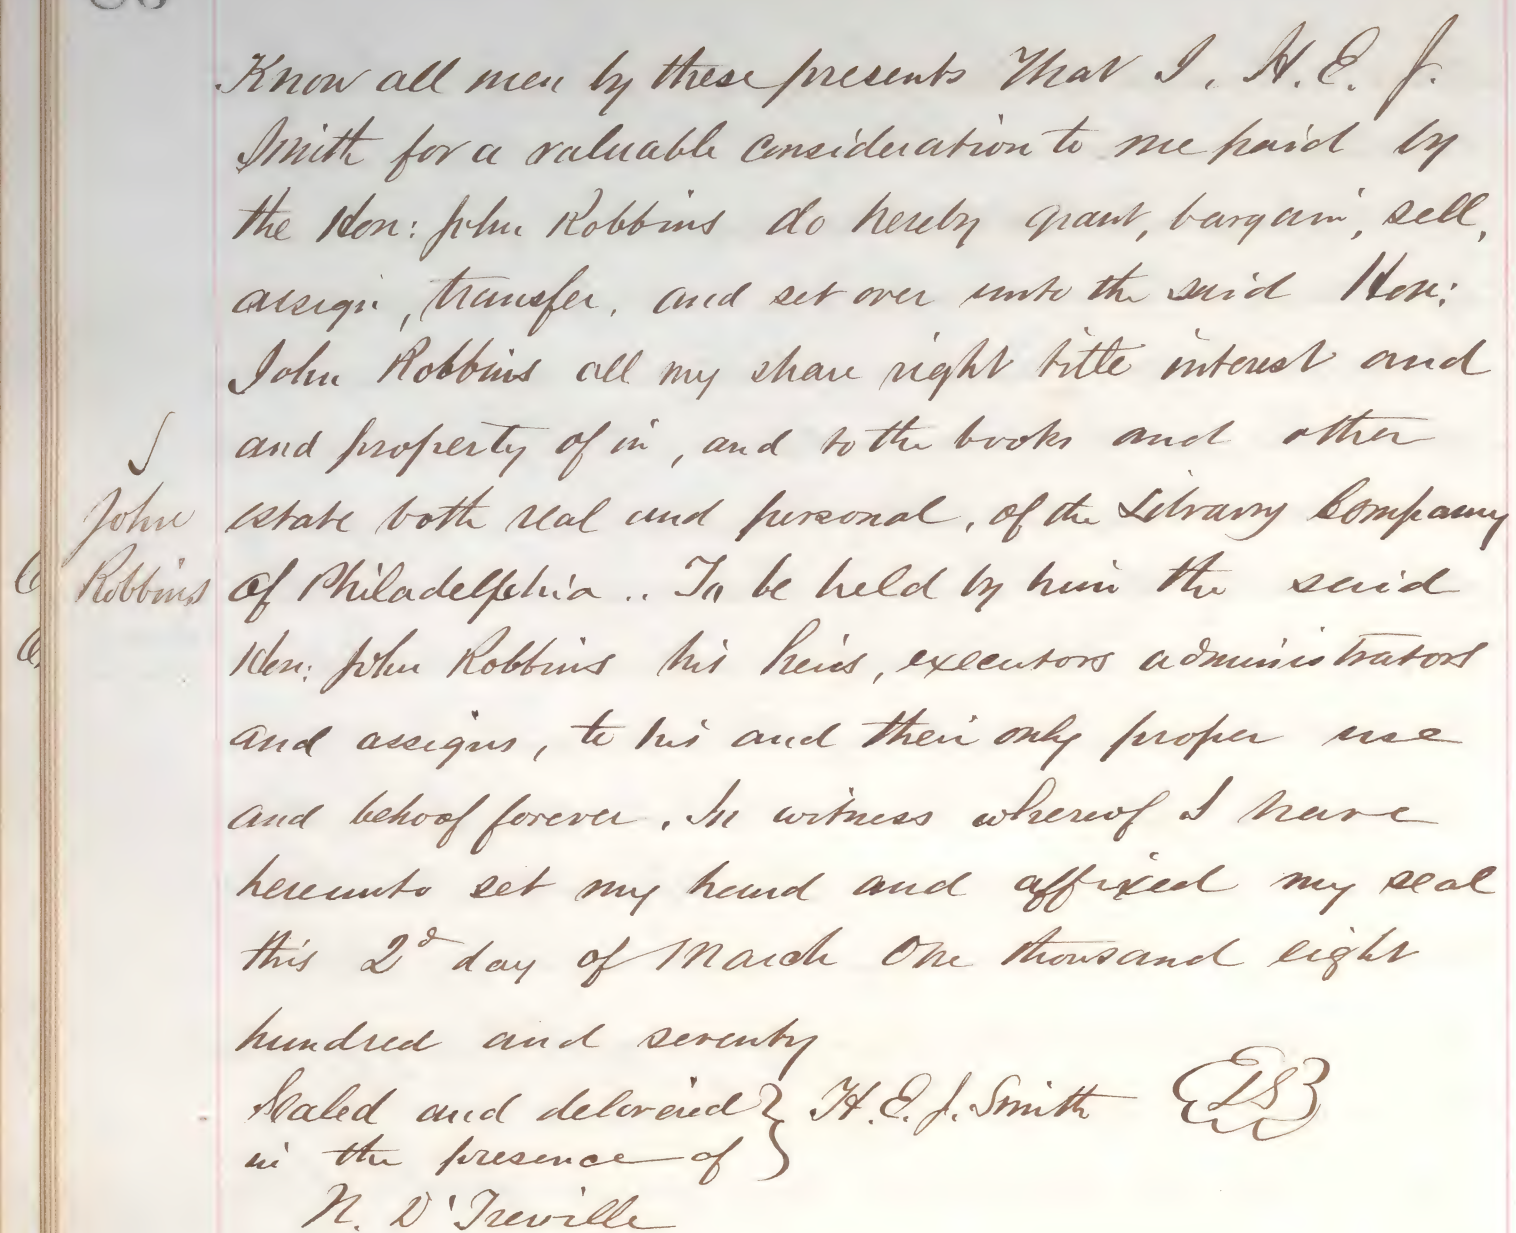 Know all men by these presents That I, H. E. J.
Smith for a valuable consideration to me paid by
the Hon: John Robbins do hereby grant, bargain, sell,
assign, transfer, and set over unto the said Hon:
John Robbins all my share right title interest and
and property of in, and to the books and other
John
estate both real and personal, of the Library Company
Robbins
of Philadelphia .. To be held by him the said
Hon: John Robbins his heirs, executors administrators
and assigns, to his and their only proper use
and behoof forever. In witness whereof I have
hereunto set my hand and affixed my seal
this 2d day of March One thousand eight
hundred and seventy
Sealed and delivered } H. E. J. Smith LS
in the presence of
N. D'Treville